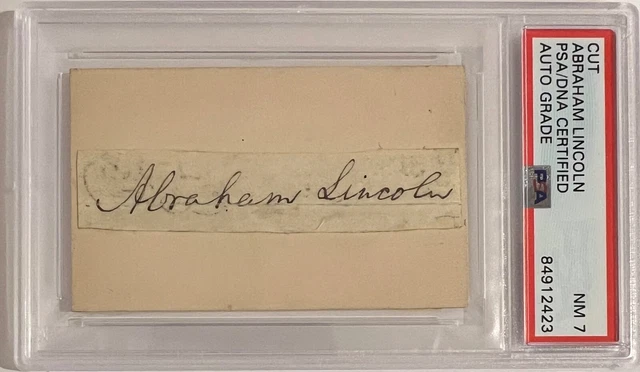 Abraham Lincoln
CUT
ABRAHAM LINCOLN
PSA/DNA CERTIFIED
AUTO GRADE
NM 7
84912423
PSA